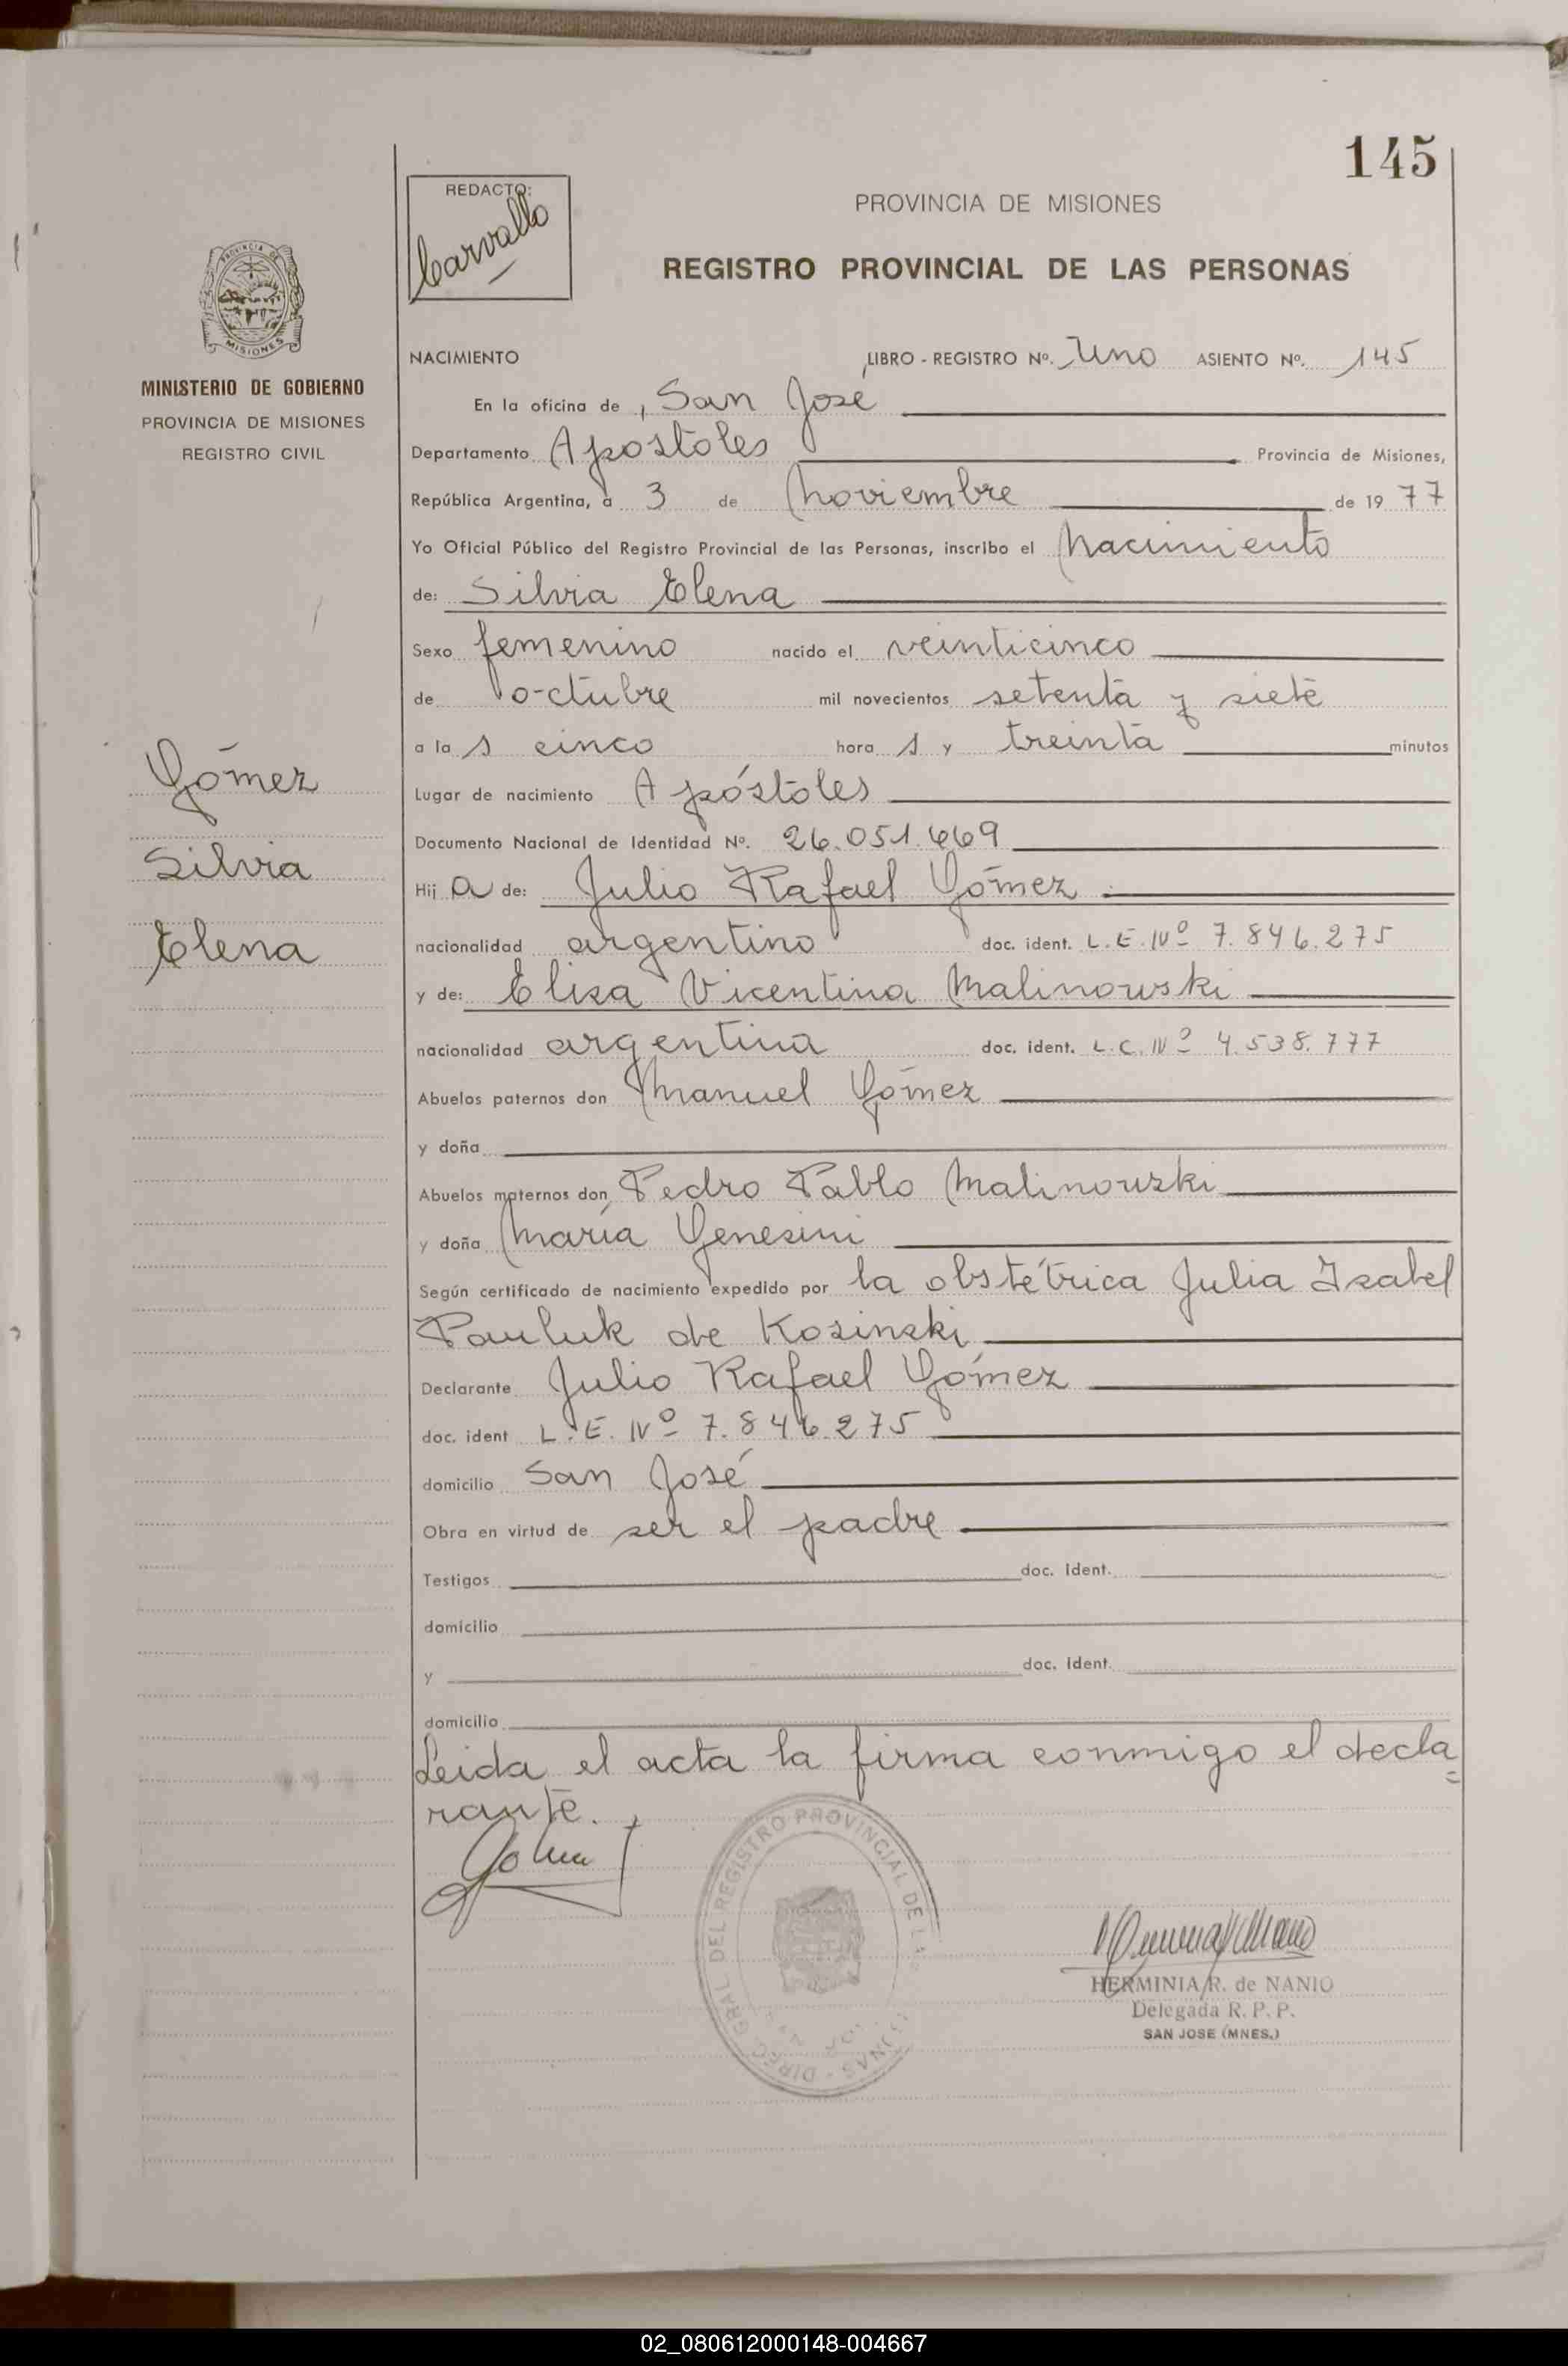 145
REDACTO:
Carvallo
PROVINCIA DE MISIONES
REGISTRO PROVINCIAL DE LAS PERSONAS
PROVINCIA DE
MISIONES
MINISTERIO DE GOBIERNO
PROVINCIA DE MISIONES
REGISTRO CIVIL
Gómez
Silvia
Elena
NACIMIENTO LIBRO - REGISTRO Nº. Uno ASIENTO Nº. 145
En la oficina de San José
Departamento Apóstoles Provincia de Misiones,
República Argentina, a 3 de Noviembre de 19 77
Yo Oficial Público del Registro Provincial de las Personas, inscribo el Nacimiento
de: Silvia Elena
Sexo femenino nacido el veinticinco
de octubre mil novecientos setenta y siete
a la s cinco hora s y treinta minutos
Lugar de nacimiento Apóstoles
Documento Nacional de Identidad Nº. 26.051.669
Hij a de: Julio Rafael Gómez
nacionalidad argentino doc. ident. L.E. Nº 7.846.275
y de: Elisa Vicentina Malinowski
nacionalidad argentina doc. ident. L.C. Nº 4.538.777
Abuelos paternos don Manuel Gómez
y doña
Abuelos maternos don Pedro Pablo Malinowski
y doña María Genesini
Según certificado de nacimiento expedido por la obstétrica Julia Isabel
Pauluk de Kosinski
Declarante Julio Rafael Gómez
doc. ident L.E. Nº 7.846.275
domicilio San José
Obra en virtud de ser el padre
Testigos doc. ident.
domicilio
y doc. ident.
domicilio
Leida el acta la firma conmigo el decla=
rante.
DIREC. GRAL. DEL REGISTRO PROVINCIAL DE LAS
HERMINIA R. de NANIO
Delegada R. P. P.
SAN JOSE (MNES.)
02_080612000148-004667